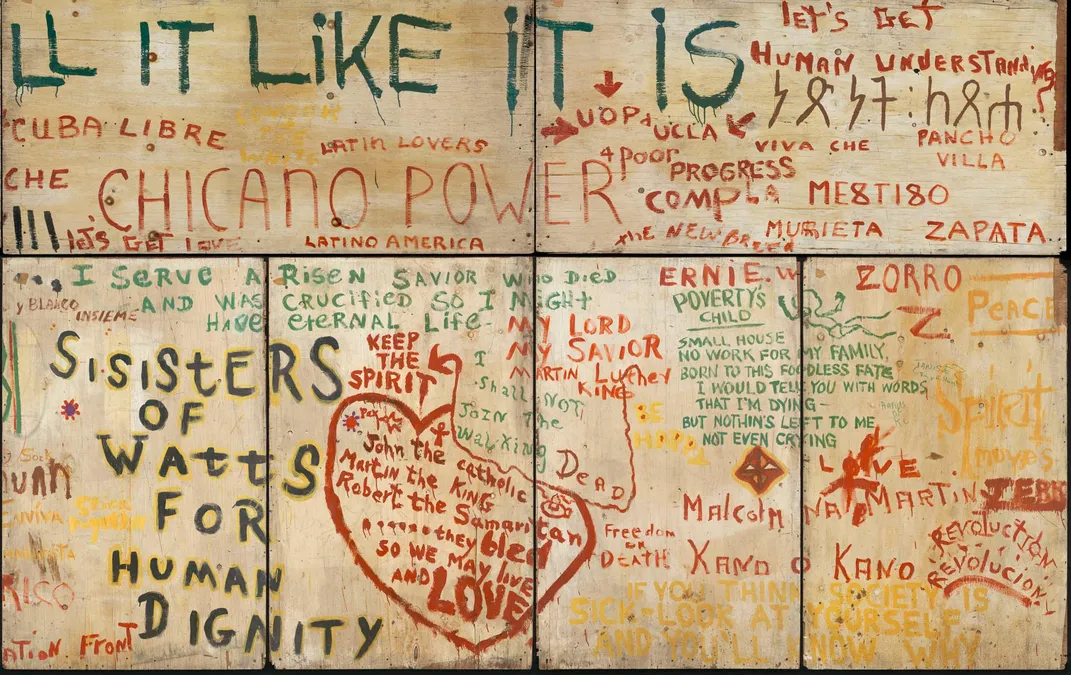 LL IT LIKE IT IS
LET'S GET
HUMAN UNDERSTANDING
CUBA LIBRE
LATIN LOVERS
UOP4
UCLA
VIVA CHE
PANCHO
VILLA
4 POOR
PROGRESS
CHE
CHICANO POWER
COMPLA
ME8TI8O
LET'S GET LOVE
LATINO AMERICA
THE NEW BREED
MURRIETA
ZAPATA
I SERVE A RISEN SAVIOR WHO DIED
AND WAS CRUCIFIED SO I MIGHT
HAVE ETERNAL LIFE-
y BLANCO
INSIEME
SISISTERS
OF
WATTS
FOR
HUMAN
DIGNITY
RICO
ATION FRONT
KEEP
THE
SPIRIT
MY LORD
MY SAVIOR
MARTIN LUTHEY
KING
I
Shall NOT
JOIN The
WALKING
DEAD
John the catholic
Martin the KING
Robert the Samaritan
they bled
SO WE MAY LIVE
AND LOVE
ERNIE. W
POVERTY'S
CHILD
SMALL HOUSE
NO WORK FOR MY FAMILY,
BORN TO THIS FOODLESS FATE
I WOULD TELL YOU WITH WORDS
THAT I'M DYING-
BUT NOTHIN'S LEFT TO ME
NOT EVEN CRYING
BE
HAPPY
Malcolm
Freedom
OR
DEATH
KANO
KANO
ZORRO
Z
Peace
Spirit
moves
LOVE
MARTIN
REVOLUCTION
REVOLUCION
IF YOU THINK SOCIETY IS
SICK-LOOK AT YOURSELF
AND YOU'LL KNOW WHY